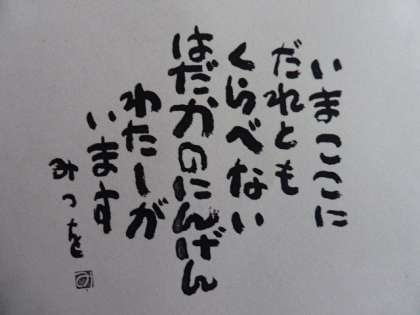 いまここに
だれとも
くらべない
はだかのにんげん
わたしが
います
みつを